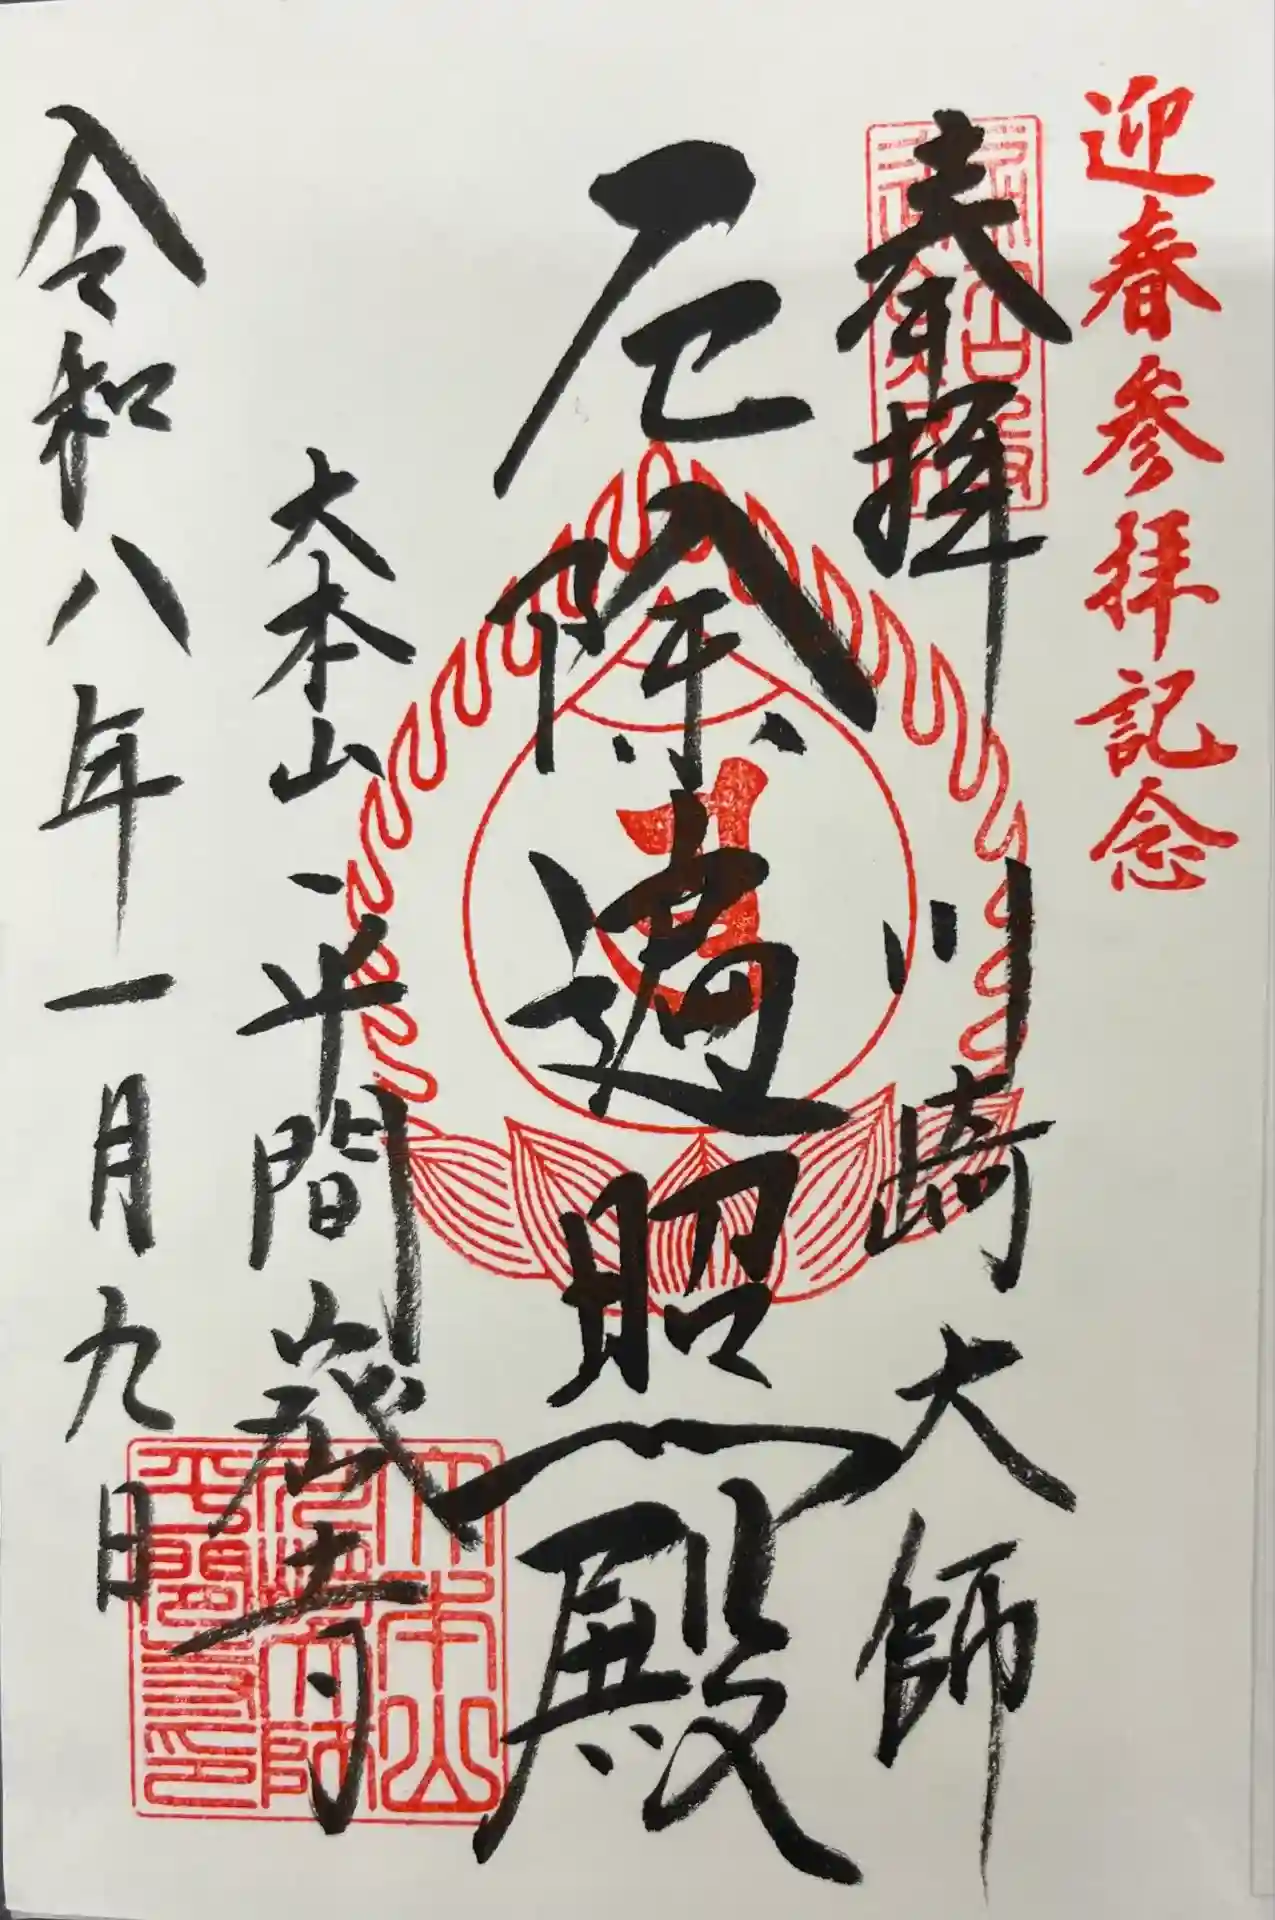 迎春参拝記念
奉拝 川崎大師
厄除遍照殿
大本山 平間寺
令和八年一月九日